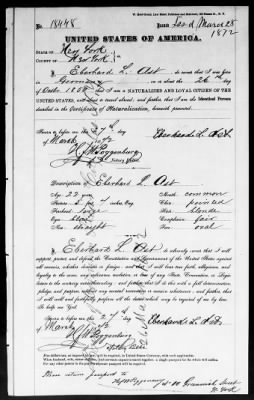 18448
Iss'd March 28
1872
UNITED STATES OF AMERICA.
STATE OF New York
COUNTY OF New York
I, Eberhard L. Ast, do swear that I was born
in Germany on about the 26 day
of Octbr. that I am a NATURALIZED AND LOYAL CITIZEN OF THE
UNITED STATES, and about to travel abroad; and further that I am the Identical Person
described in the Certificate of Naturalization, herewith presented.
Sworn to before me this 27th day
of March 1872
Eberhard L. Ast
Notary Public
Description of Eberhard L. Ast
Age: 22 years
Mouth: common
Stature: 5 feet 7 inches Eng.
Chin: pointed
Forehead: large
Hair: blonde
Eyes: blue
Complexion: fair
Nose: straight
Face: oval
I, Eberhard L. Ast, do solemnly swear that I will
support, protect and defend the Constitution and Government of the United States against
all enemies, whether domestic or foreign; and that I will bear true faith, allegiance, and
loyalty to the same, any ordinance, resolution or law of any State Convention or Legis-
lature to the contrary notwithstanding; and further, that I do this with a full determination,
pledge and purpose, without any mental reservation or evasion whatsoever; and further, that
I will well and faithfully perform all the duties which may be required of me by law.
So help me God.
Sworn to before me this 27th day
of March 1872
Eberhard L. Ast
Notary Public
Please return passport to
Greenwich Street
N. York